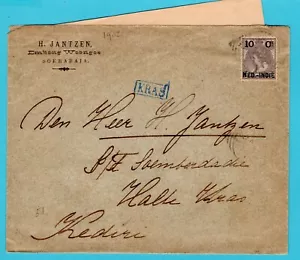 H. JANTZEN,
Embong Woongoe
SOERABAJA.
10 Ct.
NED.-INDIË
KRAS
Den Heer H. Jantzen
S/f Soemberdadie
Halte Kras
Kediri